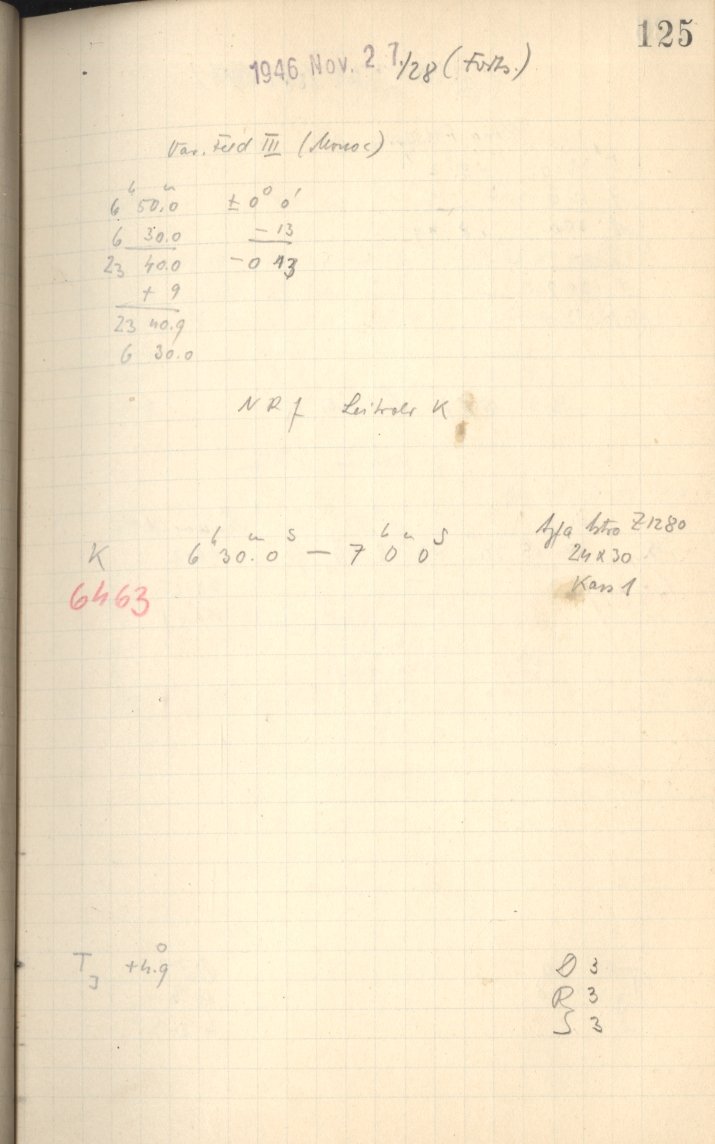 125
1946 Nov. 27./28 (Forts.)
Var. Feld III (Monoc)
6ʰ 50.0ᵐ ± 0° 0'
6 30.0 - 13
23 40.0 - 0 13
+ 9
23 40.9
6 30.0
NRf Leitrohr K
K 6ʰ 30.ᵐ0ˢ — 7ʰ 0ᵐ 0ˢ
Agfa Astro Z1280
24 x 30
Kass 1
6463
T_J +4.°9
D 3
R 3
S 3